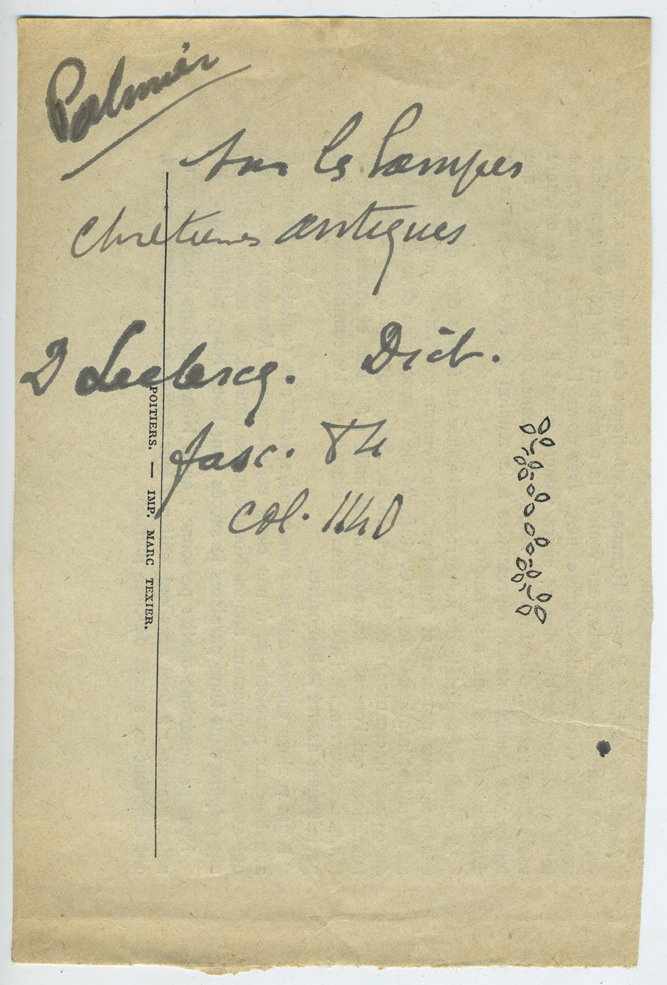 Palmier
sur les lampes
chrétiennes antiques
D Leclercq. Dict.
fasc. 84
col. 1140
POITIERS. — IMP. MARC TEXIER.